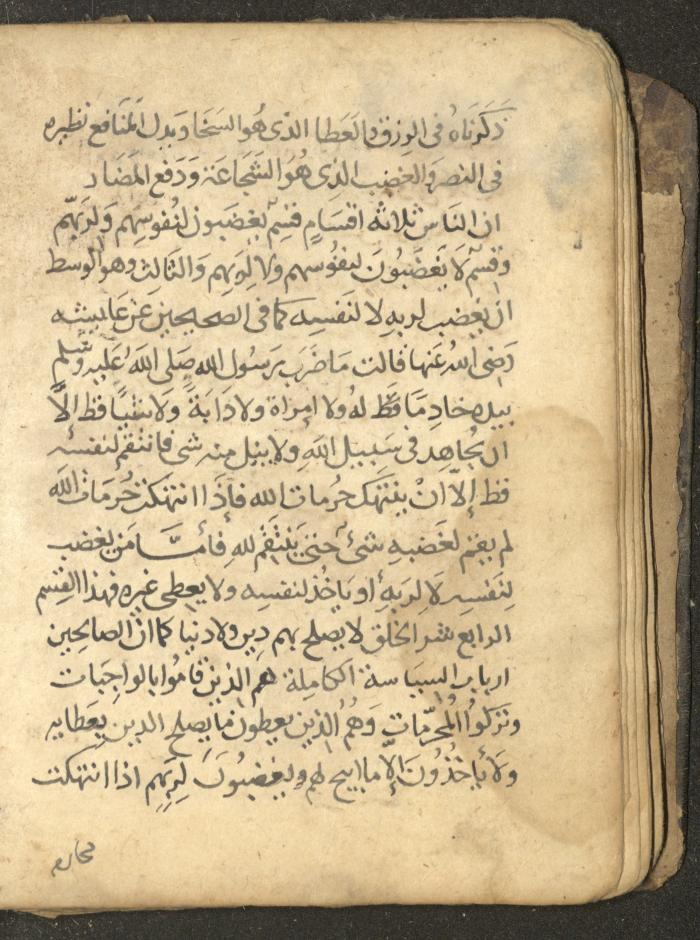 ذكرناه فى الرزق والعطا الذى هو السخا وبدل المنافع نظيره
فى النصر والغضب الذى هو الشجاعة ودفع المضار
ان الناس ثلاثه اقسام قسم يغضبون لنفوسهم ولربهم
وقسم لا يغضبون لنفوسهم ولا لربهم والثالث وهو الوسط
ان يغضب لربه لا لنفسه كما فى الصحيحين عن عايشه
رضى الله عنها قالت ما ضرب رسول الله صلى الله عليه وسلم
بيده خادما قط له ولا امراة ولا دابة ولا شيا قط إلا
ان يجاهد فى سبيل الله ولا نيل منه شى فانتقم لنفسه
قط إلا ان ينتهك حرمات الله فإذا انتهكت حرمات الله
لم يقم لغضبه شئ حتى ينتقم لله فأما من يغضب
لنفسه لا لربه أو ياخذ لنفسه ولا يعطى غيره فهذا القسم
الرابع شر الخلق لا يصلح بهم دين ولا دنيا كما ان الصالحين
ارباب السياسة الكاملة هم الذين قاموا بالواجبات
وتركوا المحرمات وهم الذين يعطون ما يصلح الدين بعطايه
ولا يأخذون إلا ما ابيح لهم ويغضبون لربهم اذا انتهكت
محارم